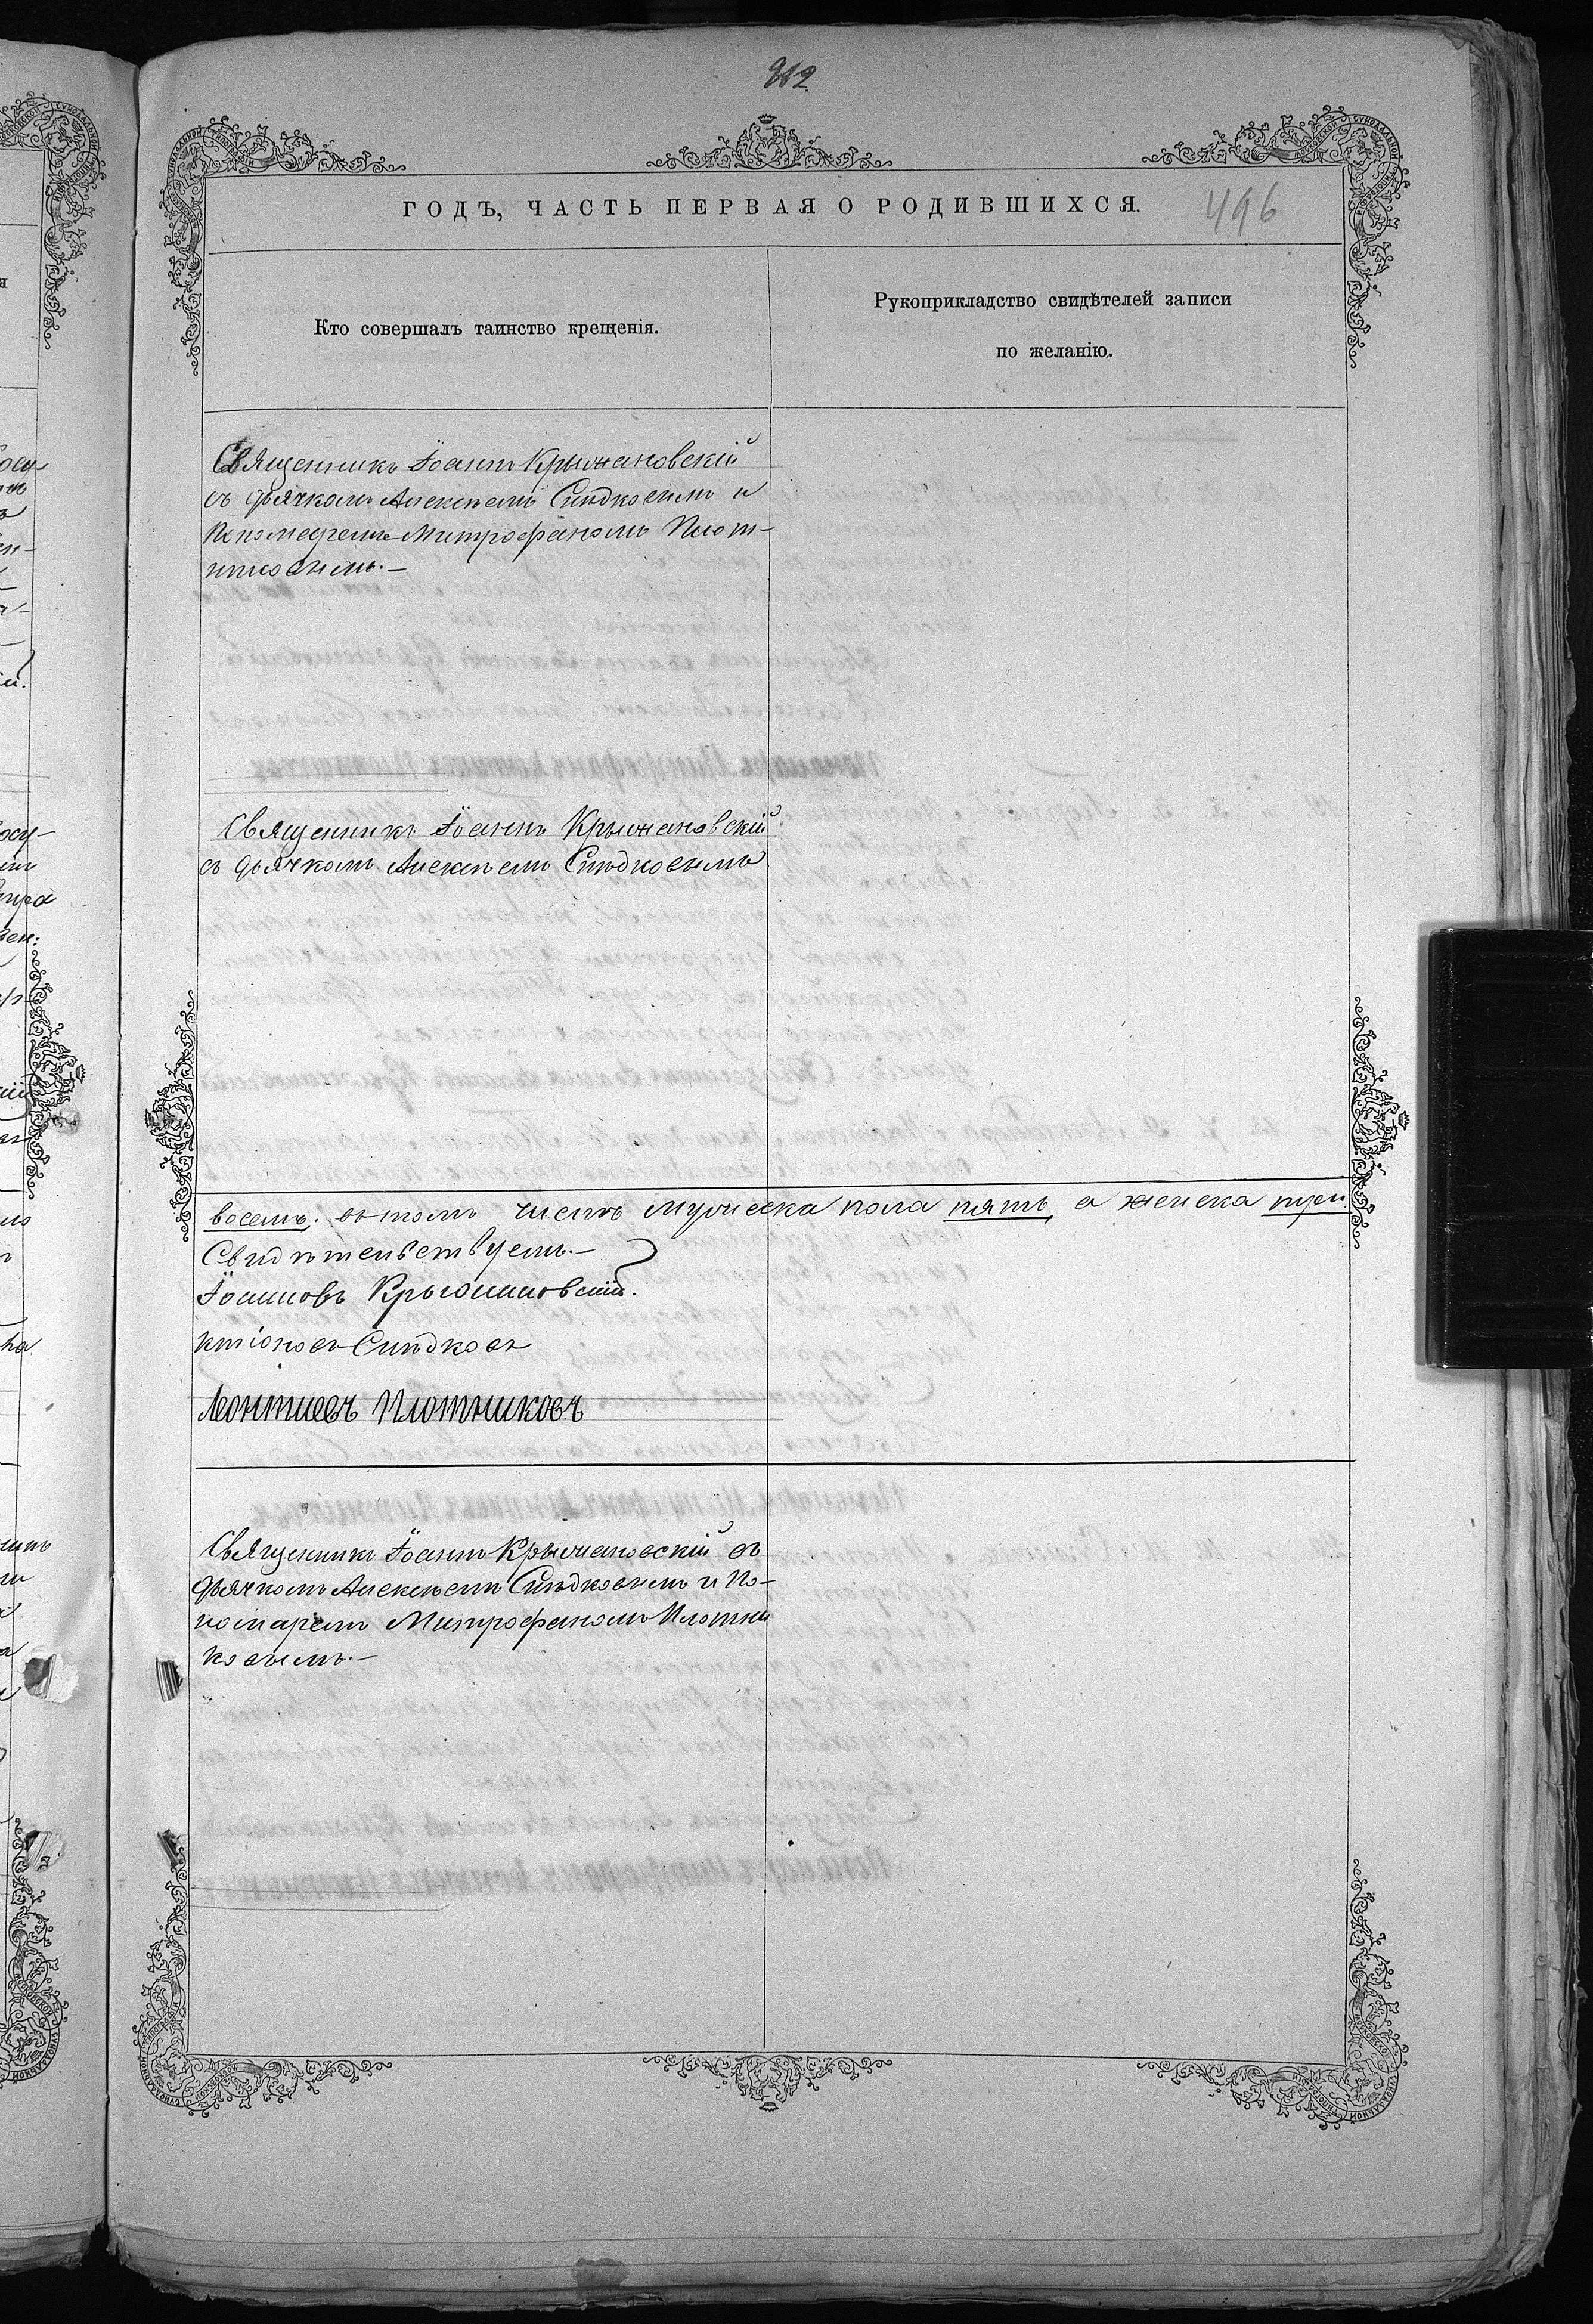 912
ГОДЪ, ЧАСТЬ ПЕРВАЯ О РОДИВШИХСЯ.
496
Кто совершалъ таинство крещенія.
Рукоприкладство свидѣтелей записи
по желанію.
Священникъ Іоаннъ Крыжановскій
съ дьячкомъ Алексѣемъ Сѣдковымъ и
пономаремъ Митрофаномъ Плот-
никовымъ.—
Священникъ Іоаннъ Крыжановскій
съ дьячкомъ Алексѣемъ Сѣдковымъ
восемь; въ томъ числѣ мужеска пола пять, а женска три.
Свидѣтельствуемъ.—
Іоанновъ Крыжановскій.
ктіоновъ Сѣдковъ
Леонтиевъ Плотниковъ
Священникъ Іоаннъ Крыжановскій съ
дьячкомъ Алексѣемъ Сѣдковымъ и по-
номаремъ Митрофаномъ Плотни
ковымъ.—